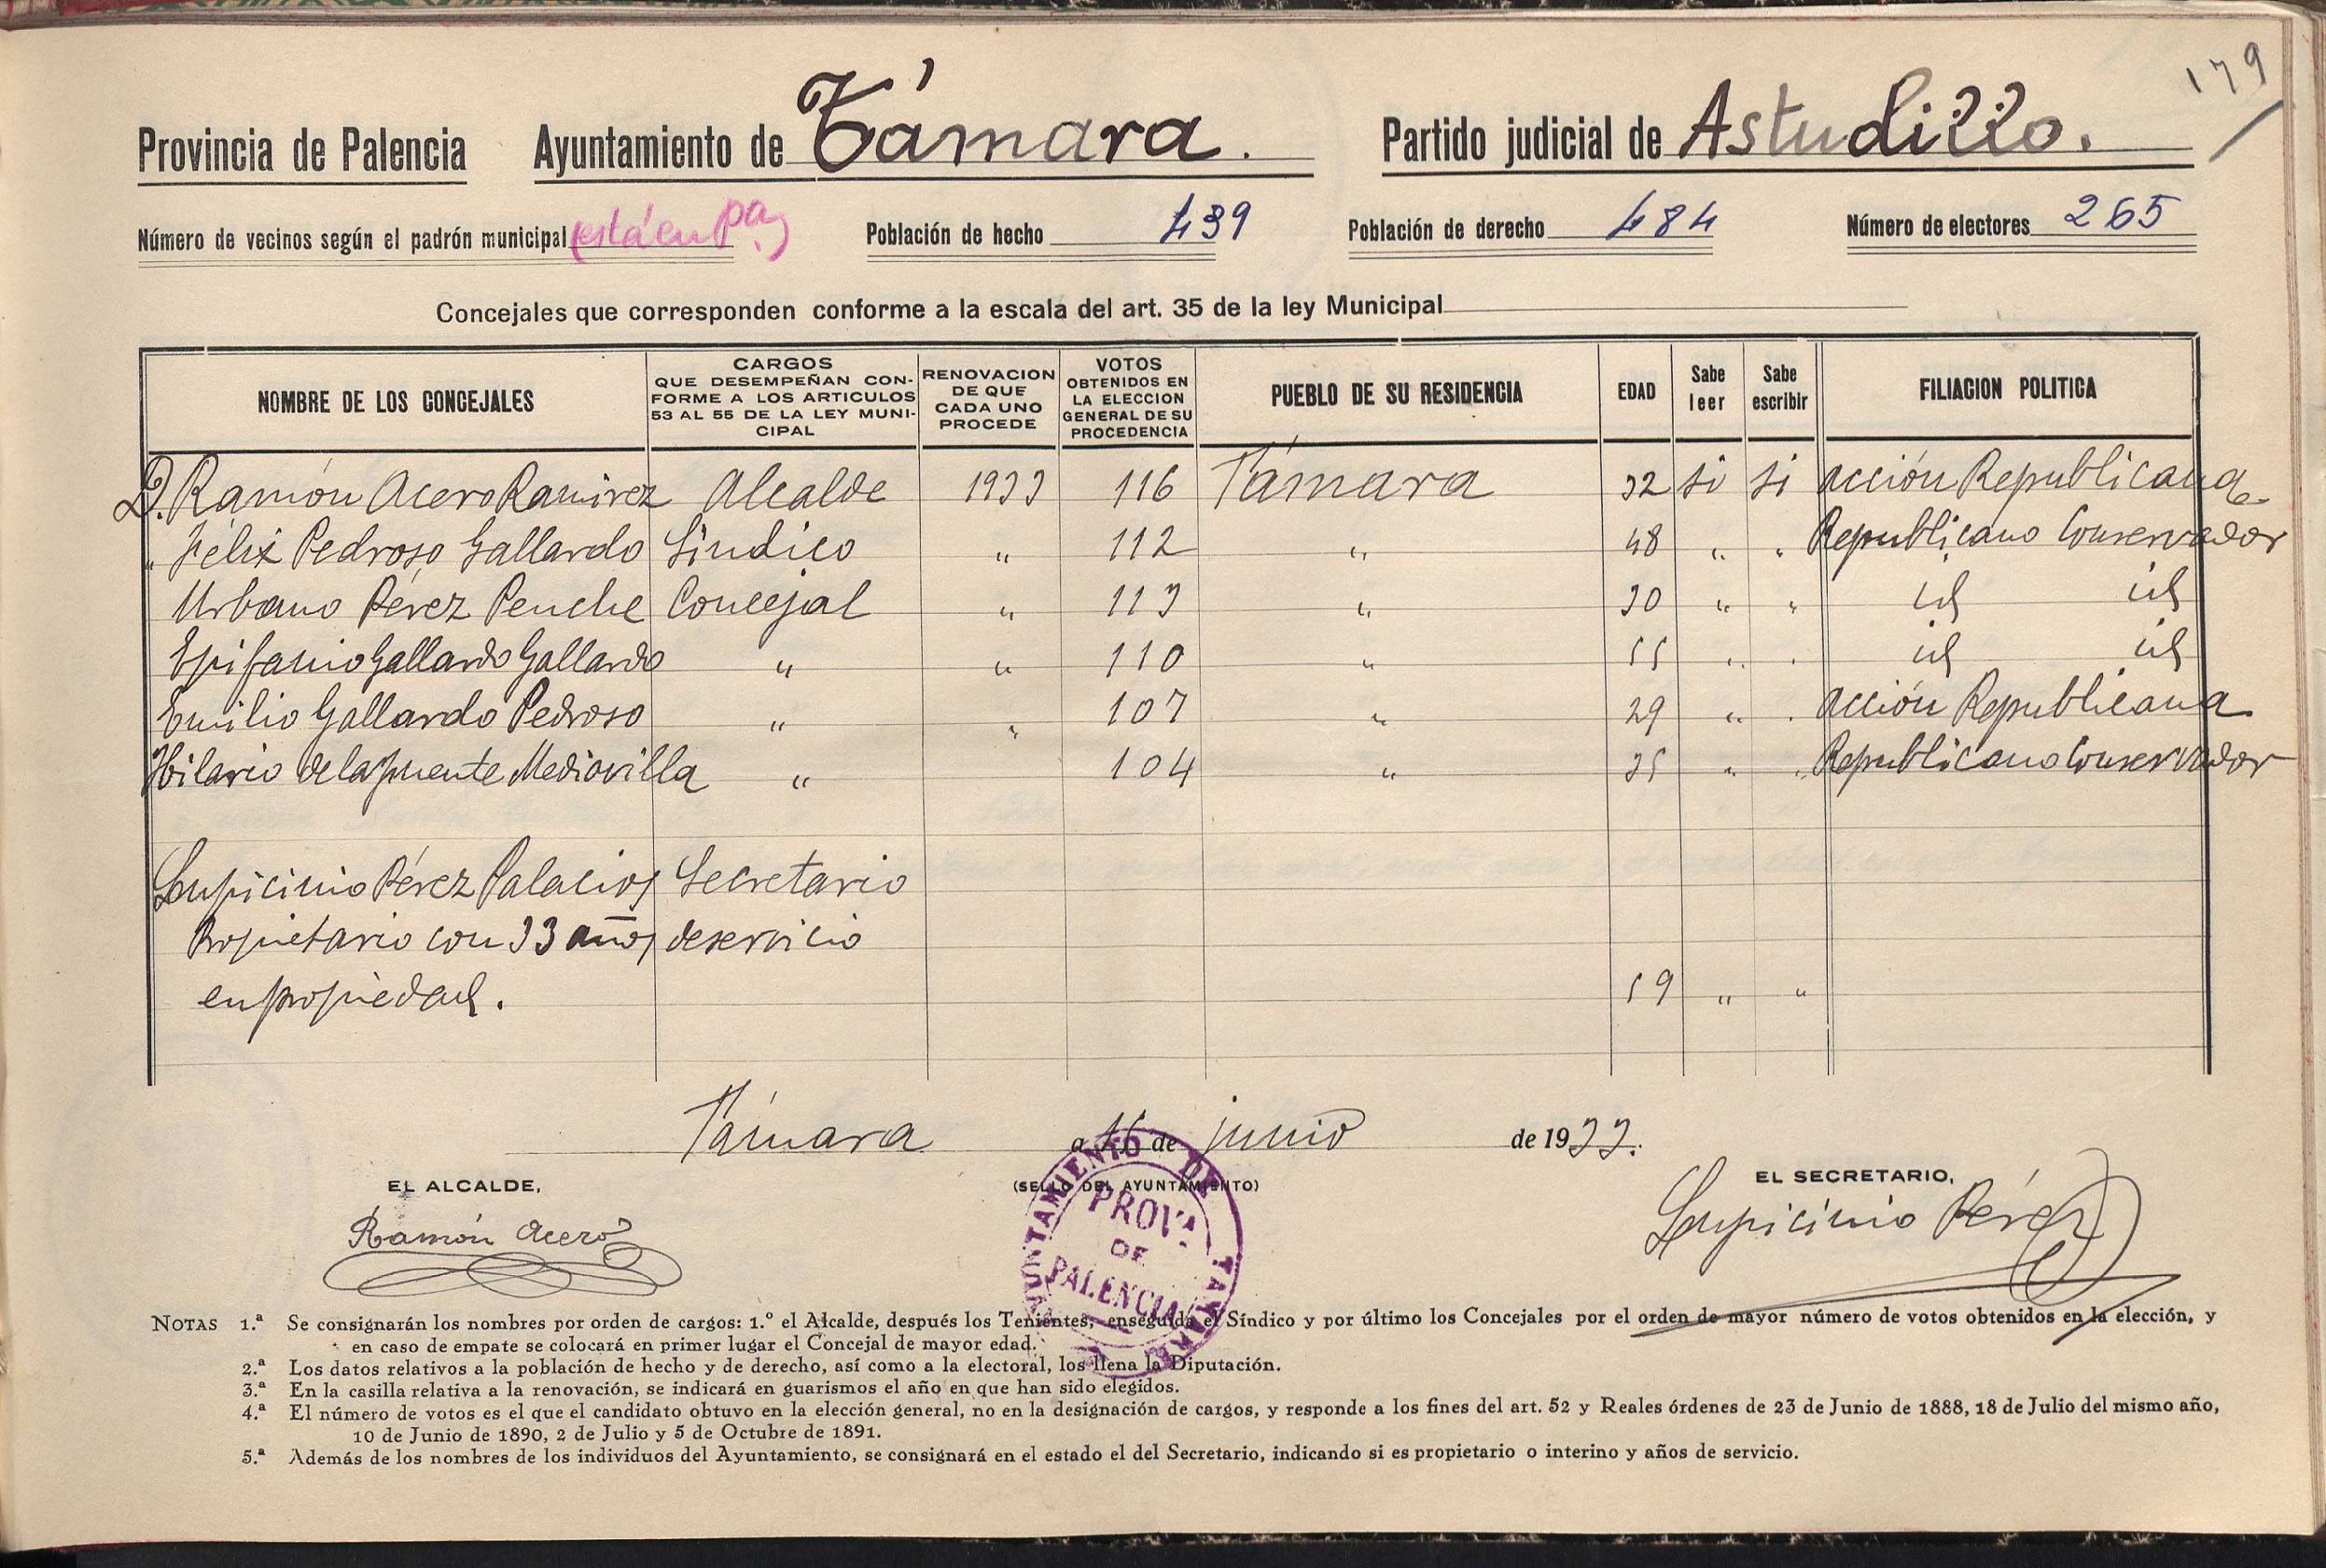 179
Provincia de Palencia Ayuntamiento de Támara. Partido judicial de Astudillo.
Número de vecinos según el padrón municipal (está en paz) Población de hecho 439 Población de derecho 484 Número de electores 265
Concejales que corresponden conforme a la escala del art. 35 de la ley Municipal
NOMBRE DE LOS CONCEJALES
CARGOS
QUE DESEMPEÑAN CON-
FORME A LOS ARTICULOS
53 AL 55 DE LA LEY MUNI-
CIPAL
RENOVACION
DE QUE
CADA UNO
PROCEDE
VOTOS
OBTENIDOS EN
LA ELECCION
GENERAL DE SU
PROCEDENCIA
PUEBLO DE SU RESIDENCIA
EDAD
Sabe
leer
Sabe
escribir
FILIACION POLITICA
D. Ramón Acero Ramirez Alcalde 1933 116 Támara 32 si si Acción Republicana
" Félix Pedroso Gallardo Síndico " 112 " 48 " " Republicano Conservador
Urbano Pérez Penche Concejal " 113 " 30 " " id id
Epifanio Gallardo Gallardo " " 110 " 55 " " id id
Emilio Gallardo Pedroso " " 107 " 29 " " Acción Republicana
Hilario de la puente Mediavilla " 104 " 35 " " Republicano Conservador
Lupicinio Pérez Palacios Secretario
Propietario con 33 años de servicio
en propiedad. 59 " "
Támara a 16 de junio de 1933.
EL ALCALDE,
(SELLO DEL AYUNTAMIENTO)
EL SECRETARIO,
Ramón Acero
AYUNTAMIENTO DE TAMARA
PROVA
DE
PALENCIA
Lupicinio Pérez
NOTAS 1.ª Se consignarán los nombres por orden de cargos: 1.º el Alcalde, después los Tenientes, enseguida el Síndico y por último los Concejales por el orden de mayor número de votos obtenidos en la elección, y
en caso de empate se colocará en primer lugar el Concejal de mayor edad.
2.ª Los datos relativos a la población de hecho y de derecho, así como a la electoral, los llena la Diputación.
3.ª En la casilla relativa a la renovación, se indicará en guarismos el año en que han sido elegidos.
4.ª El número de votos es el que el candidato obtuvo en la elección general, no en la designación de cargos, y responde a los fines del art. 52 y Reales órdenes de 23 de Junio de 1888, 18 de Julio del mismo año,
10 de Junio de 1890, 2 de Julio y 5 de Octubre de 1891.
5.ª Además de los nombres de los individuos del Ayuntamiento, se consignará en el estado el del Secretario, indicando si es propietario o interino y años de servicio.